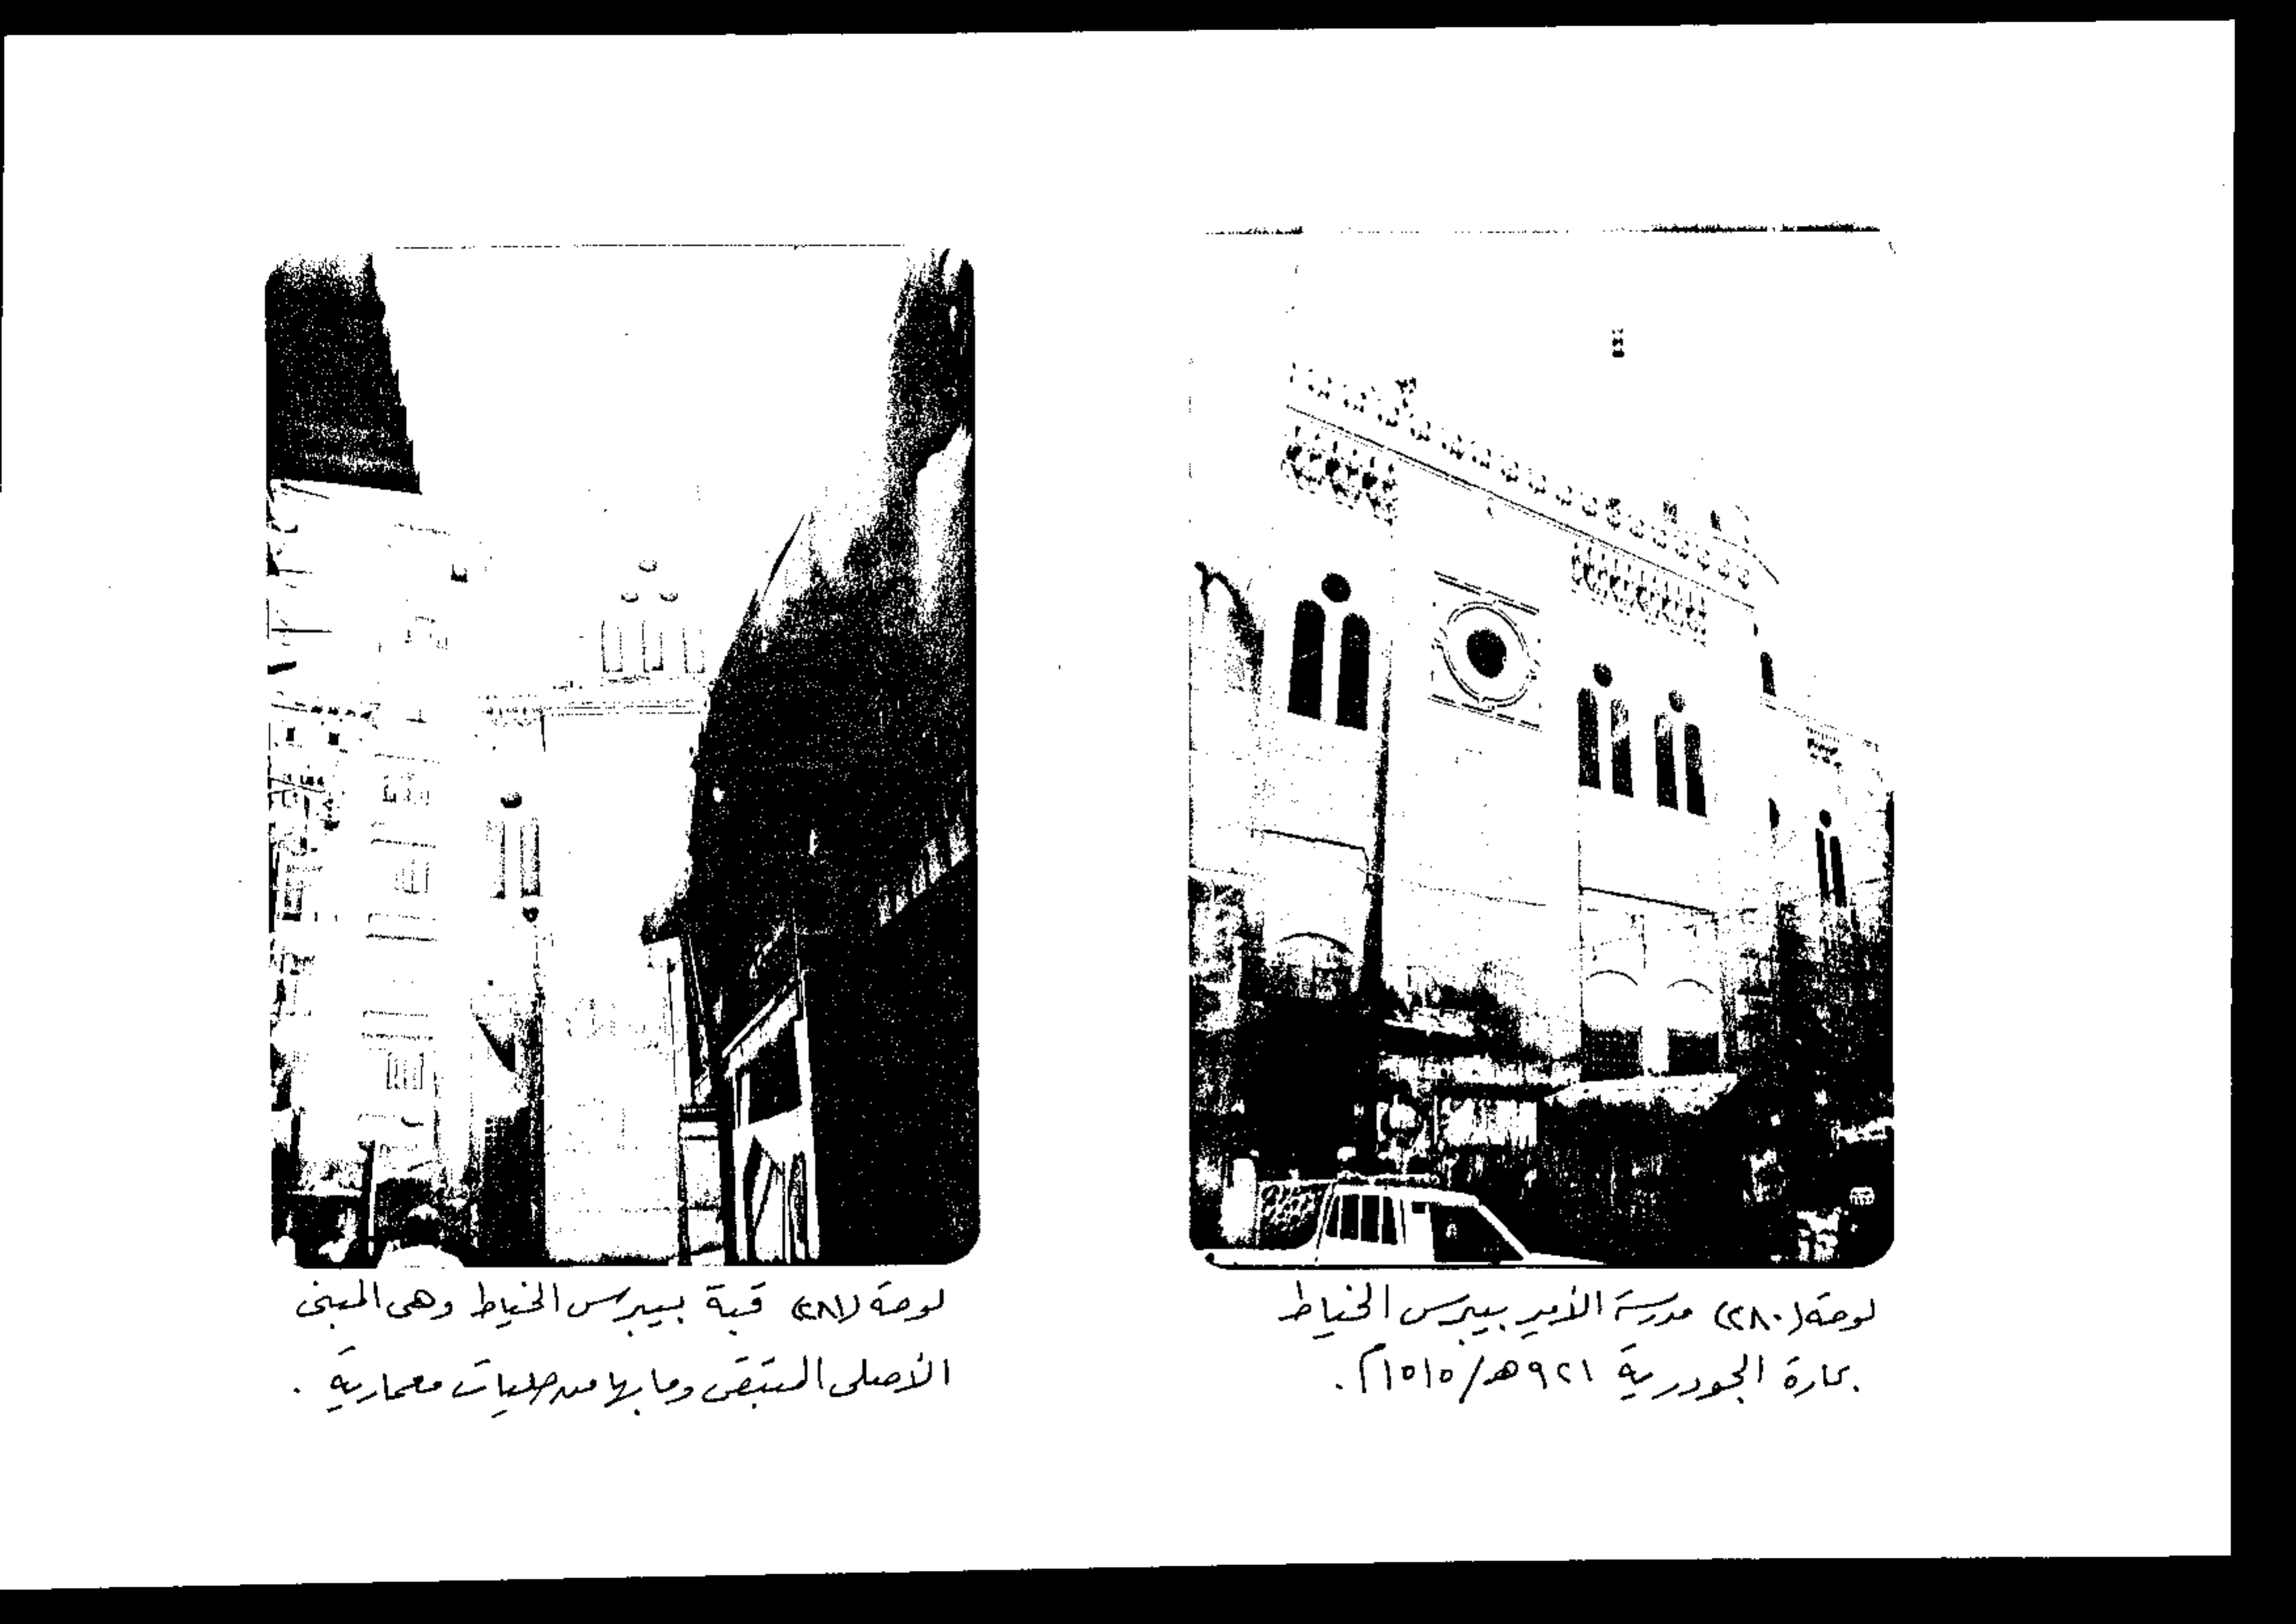 لوحة (٢٨٠) مدرسة الأمير بيبرس الخياط
بحارة الجودرية ٩٢١هـ/١٥١٥م.
لوحة (٢٨١) قبة بيبرس الخياط وهى المبنى
الأصلى المتبقى وما بها من حليات معمارية .